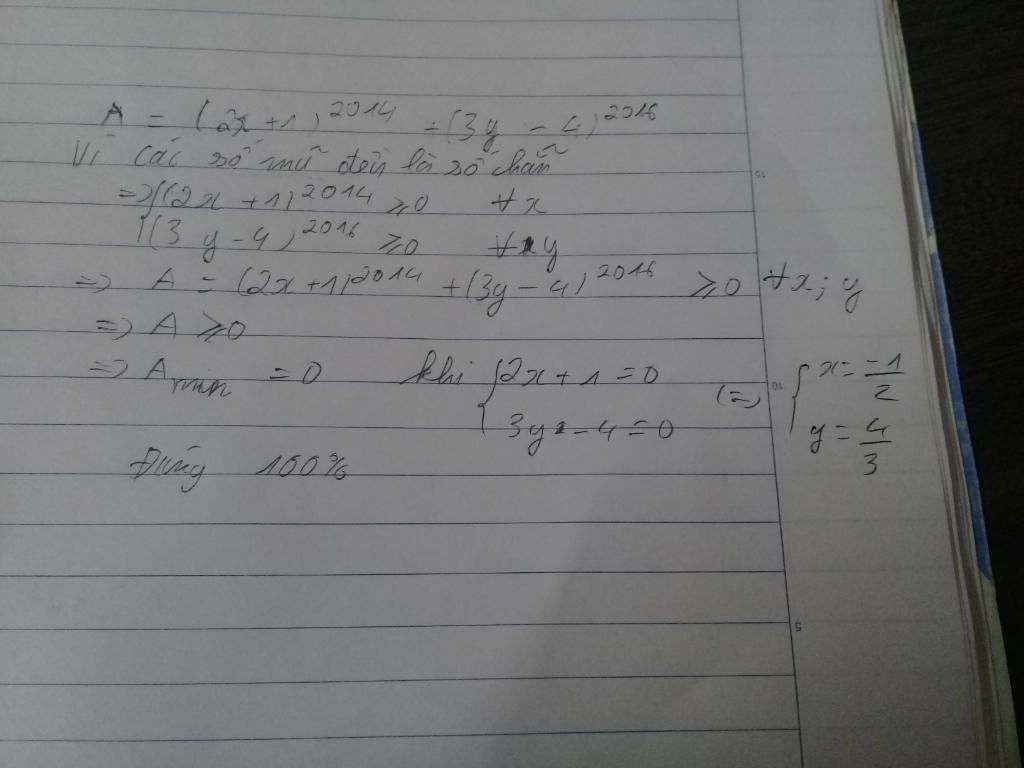 A = (2x+1)^2014 + (3y - 4)^2016
Vì các số mũ đều là số chẵn
=> { (2x+1)^2014 ⩾0 ∀x
(3y-4)^2016 ⩾0 ∀y
=> A = (2x+1)^2014 + (3y-4)^2016 ⩾0 ∀x; y
=> A ⩾0
=> Amin = 0 khi { 2x+1=0 (=) { x= -1/2
3y-4=0 y= 4/3
Đúng 100%
15
10
5